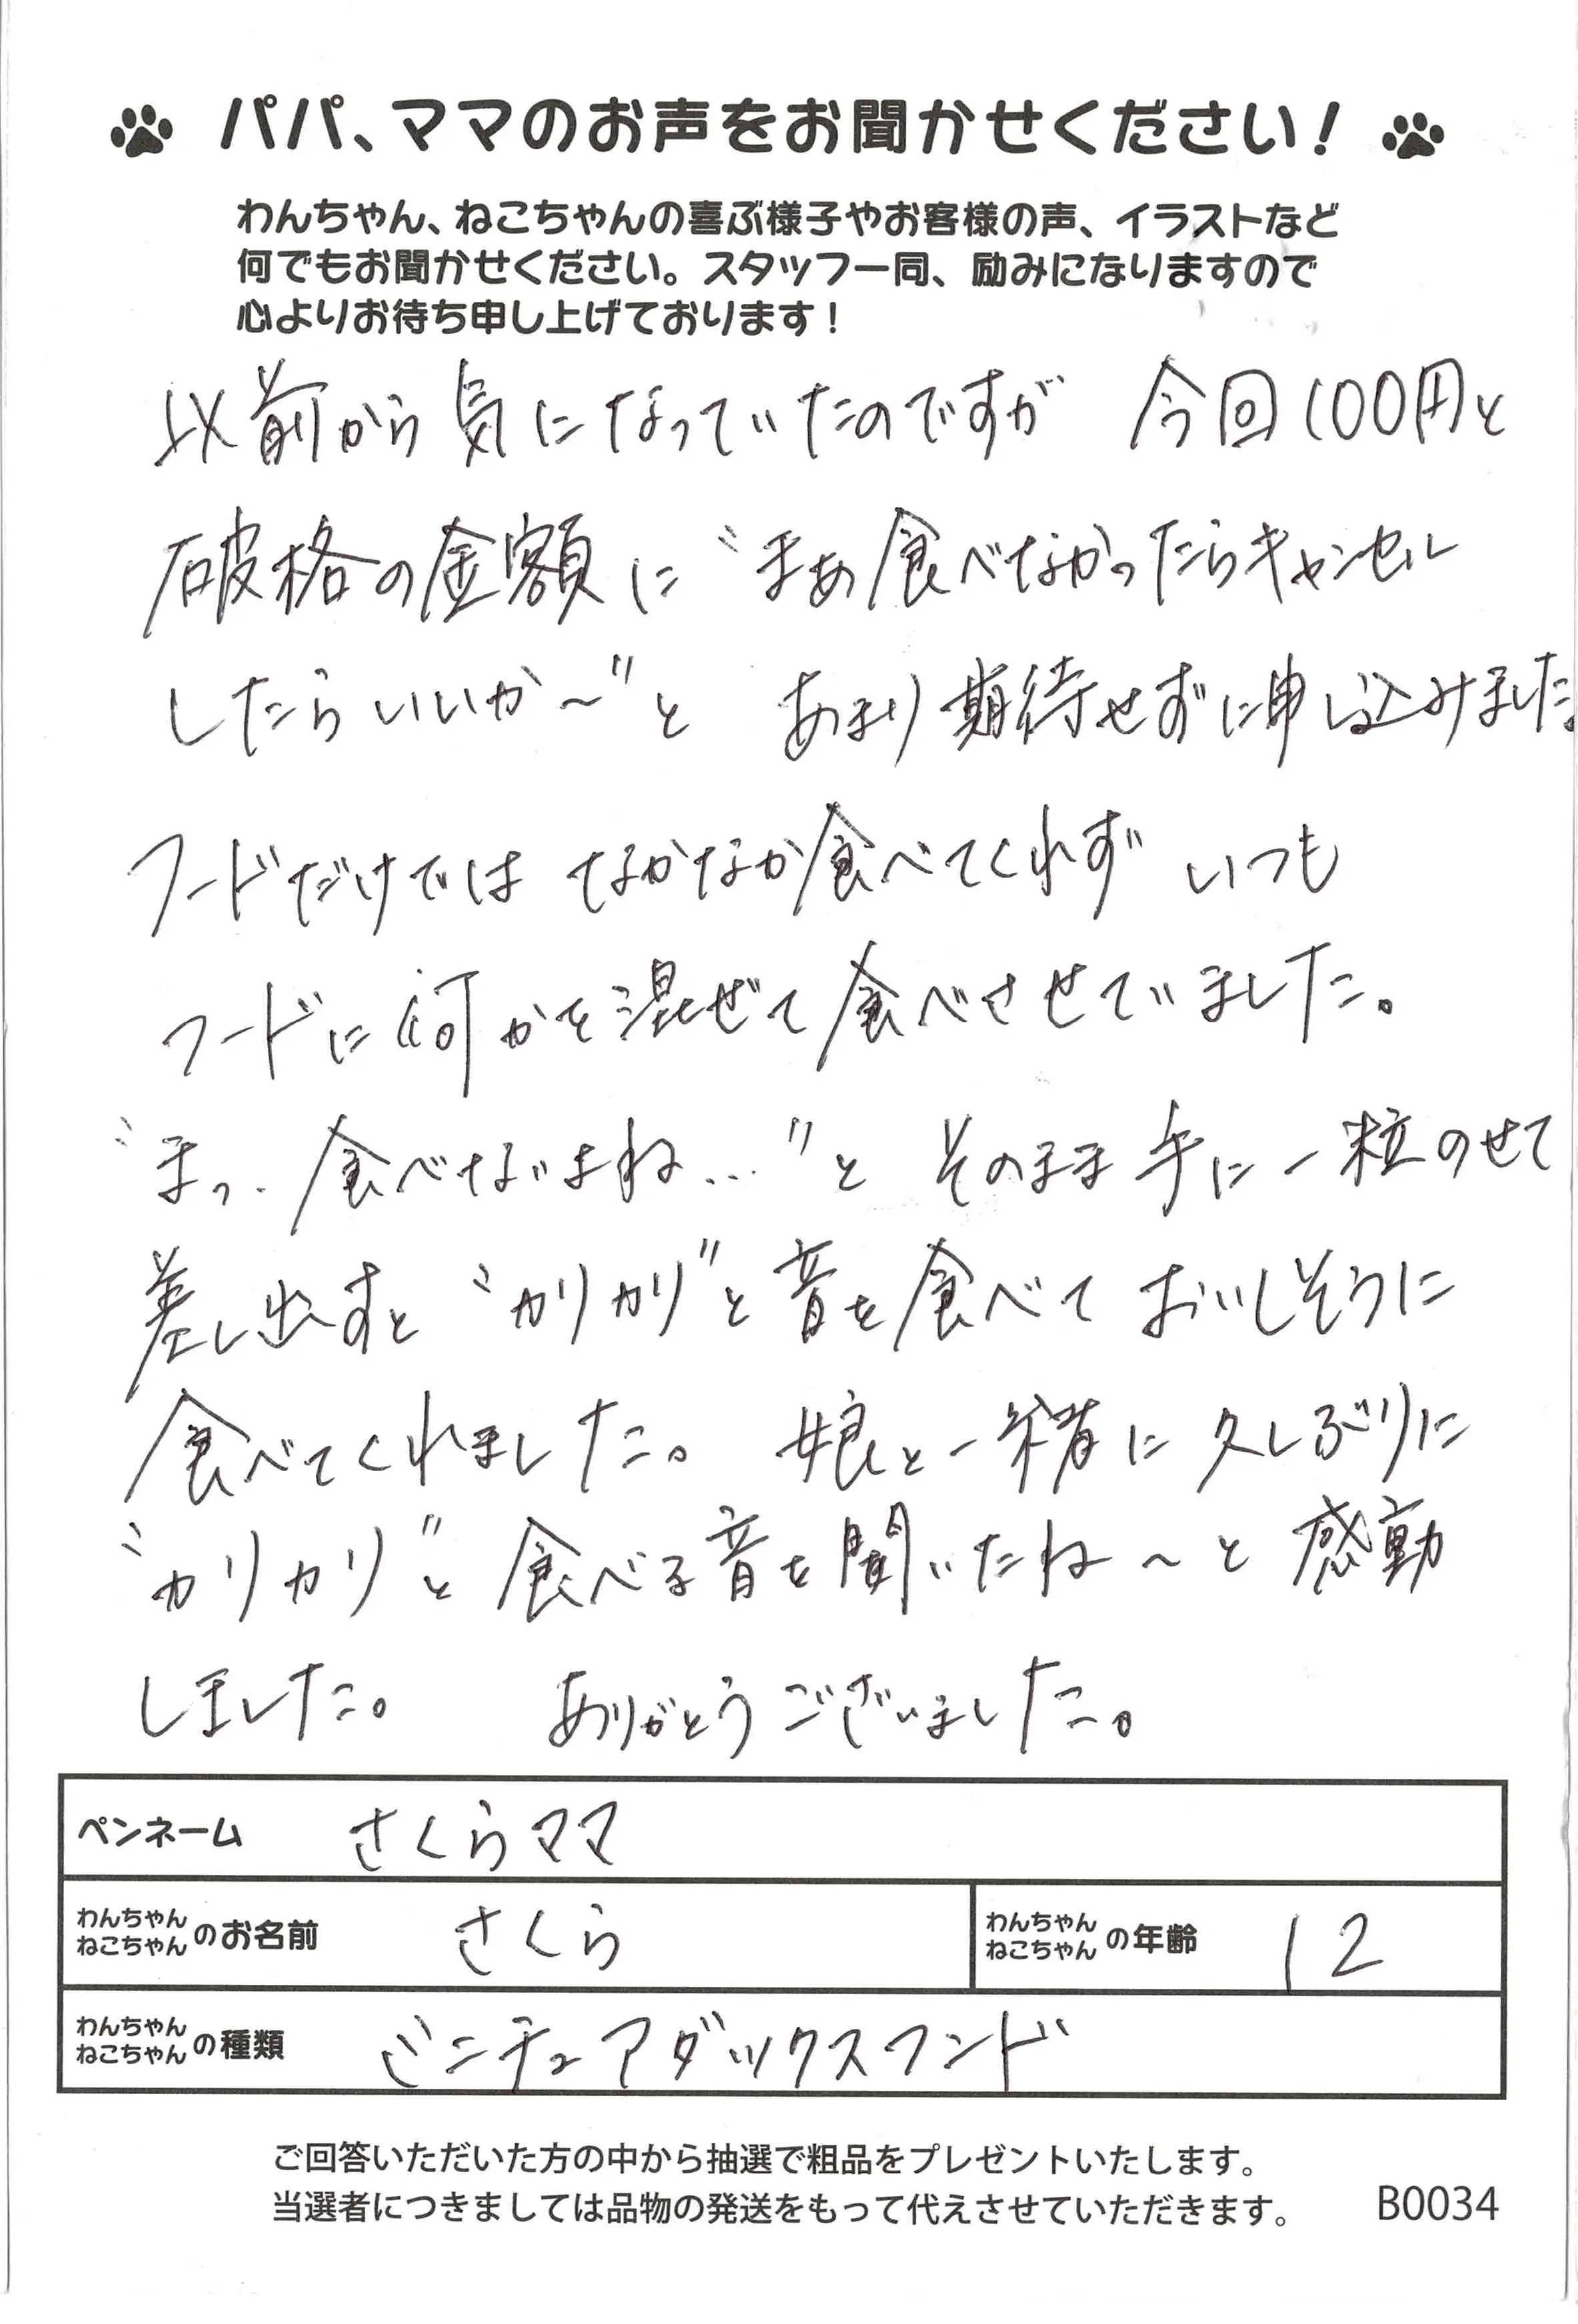 パパ、ママのお声をお聞かせください！
わんちゃん、ねこちゃんの喜ぶ様子やお客様の声、イラストなど
何でもお聞かせください。スタッフ一同、励みになりますので
心よりお待ち申し上げております！
以前から気になっていたのですが 今回100円と
破格の金額に〝まあ食べなかったらキャンセル
したらいいか〜〟と あまり期待せずに申し込みました。
フードだけでは なかなか食べてくれず いつも
フードに何かを混ぜて食べさせていました。
〝まっ.. 食べないよね...〟と そのまま手に一粒のせて
差し出すと〝カリカリ〟と音を食べて おいしそうに
食べてくれました。 娘と一緒に久しぶりに
〝カリカリ〟と食べる音を聞いたね〜と感動
しました。 ありがとうございました。
ペンネーム さくらママ
わんちゃん ねこちゃん のお名前 さくら わんちゃん ねこちゃん の年齢 12
わんちゃん ねこちゃん の種類 ミニチュアダックスフンド
ご回答いただいた方の中から抽選で粗品をプレゼントいたします。
当選者につきましては品物の発送をもって代えさせていただきます。 B0034